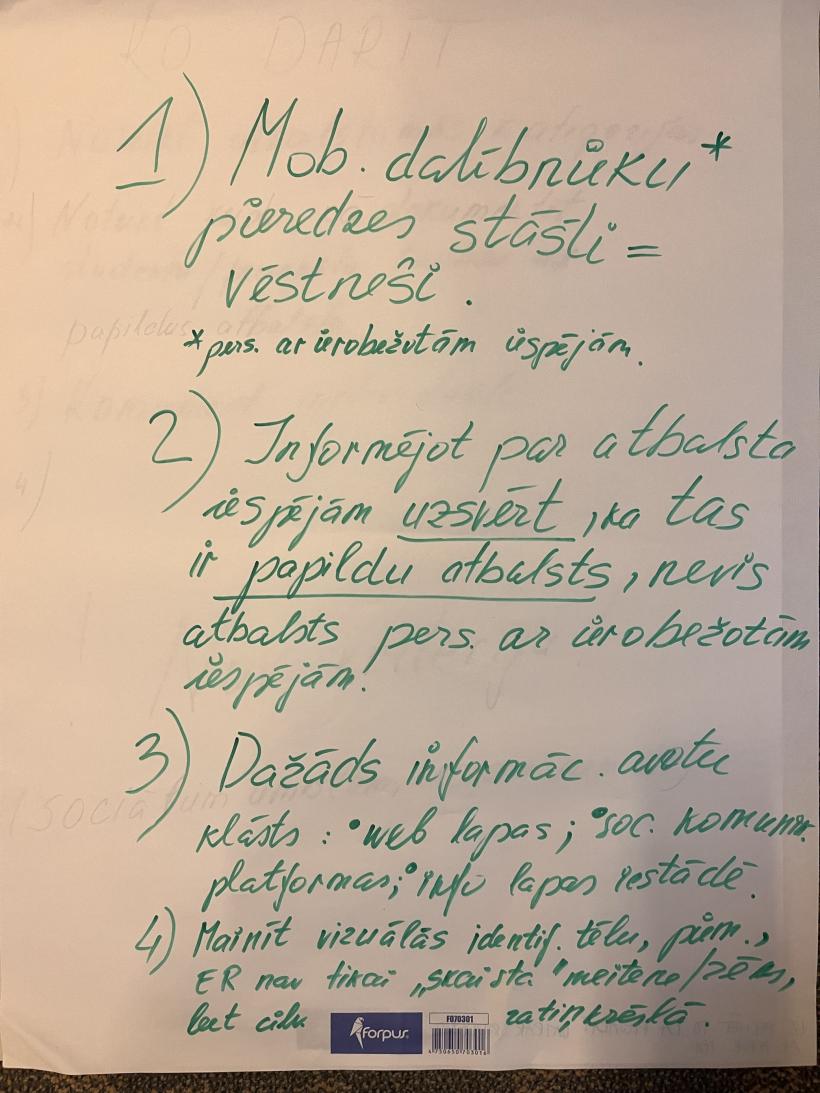 KO DARĪT
1) Mob. dalībnieku*
pieredzes stāsti =
vēstneši.
*pers. ar ierobežotām iespējām.
2) Informējot par atbalsta
iespējām uzsvērt, ka tas
ir papildu atbalsts, nevis
atbalsts pers. ar ierobežotām
iespējām!
3) Dažāds informāc. avotu
klāsts: • web lapas; • soc. komunik.
platformas; • info lapas iestādē.
4) Mainīt vizuālās identif. tēlu, piem.,
ER nav tikai „skaista" meitene/zēns,
bet cilv. ratiņkrēslā.
forpus
FO70301
4750650703016